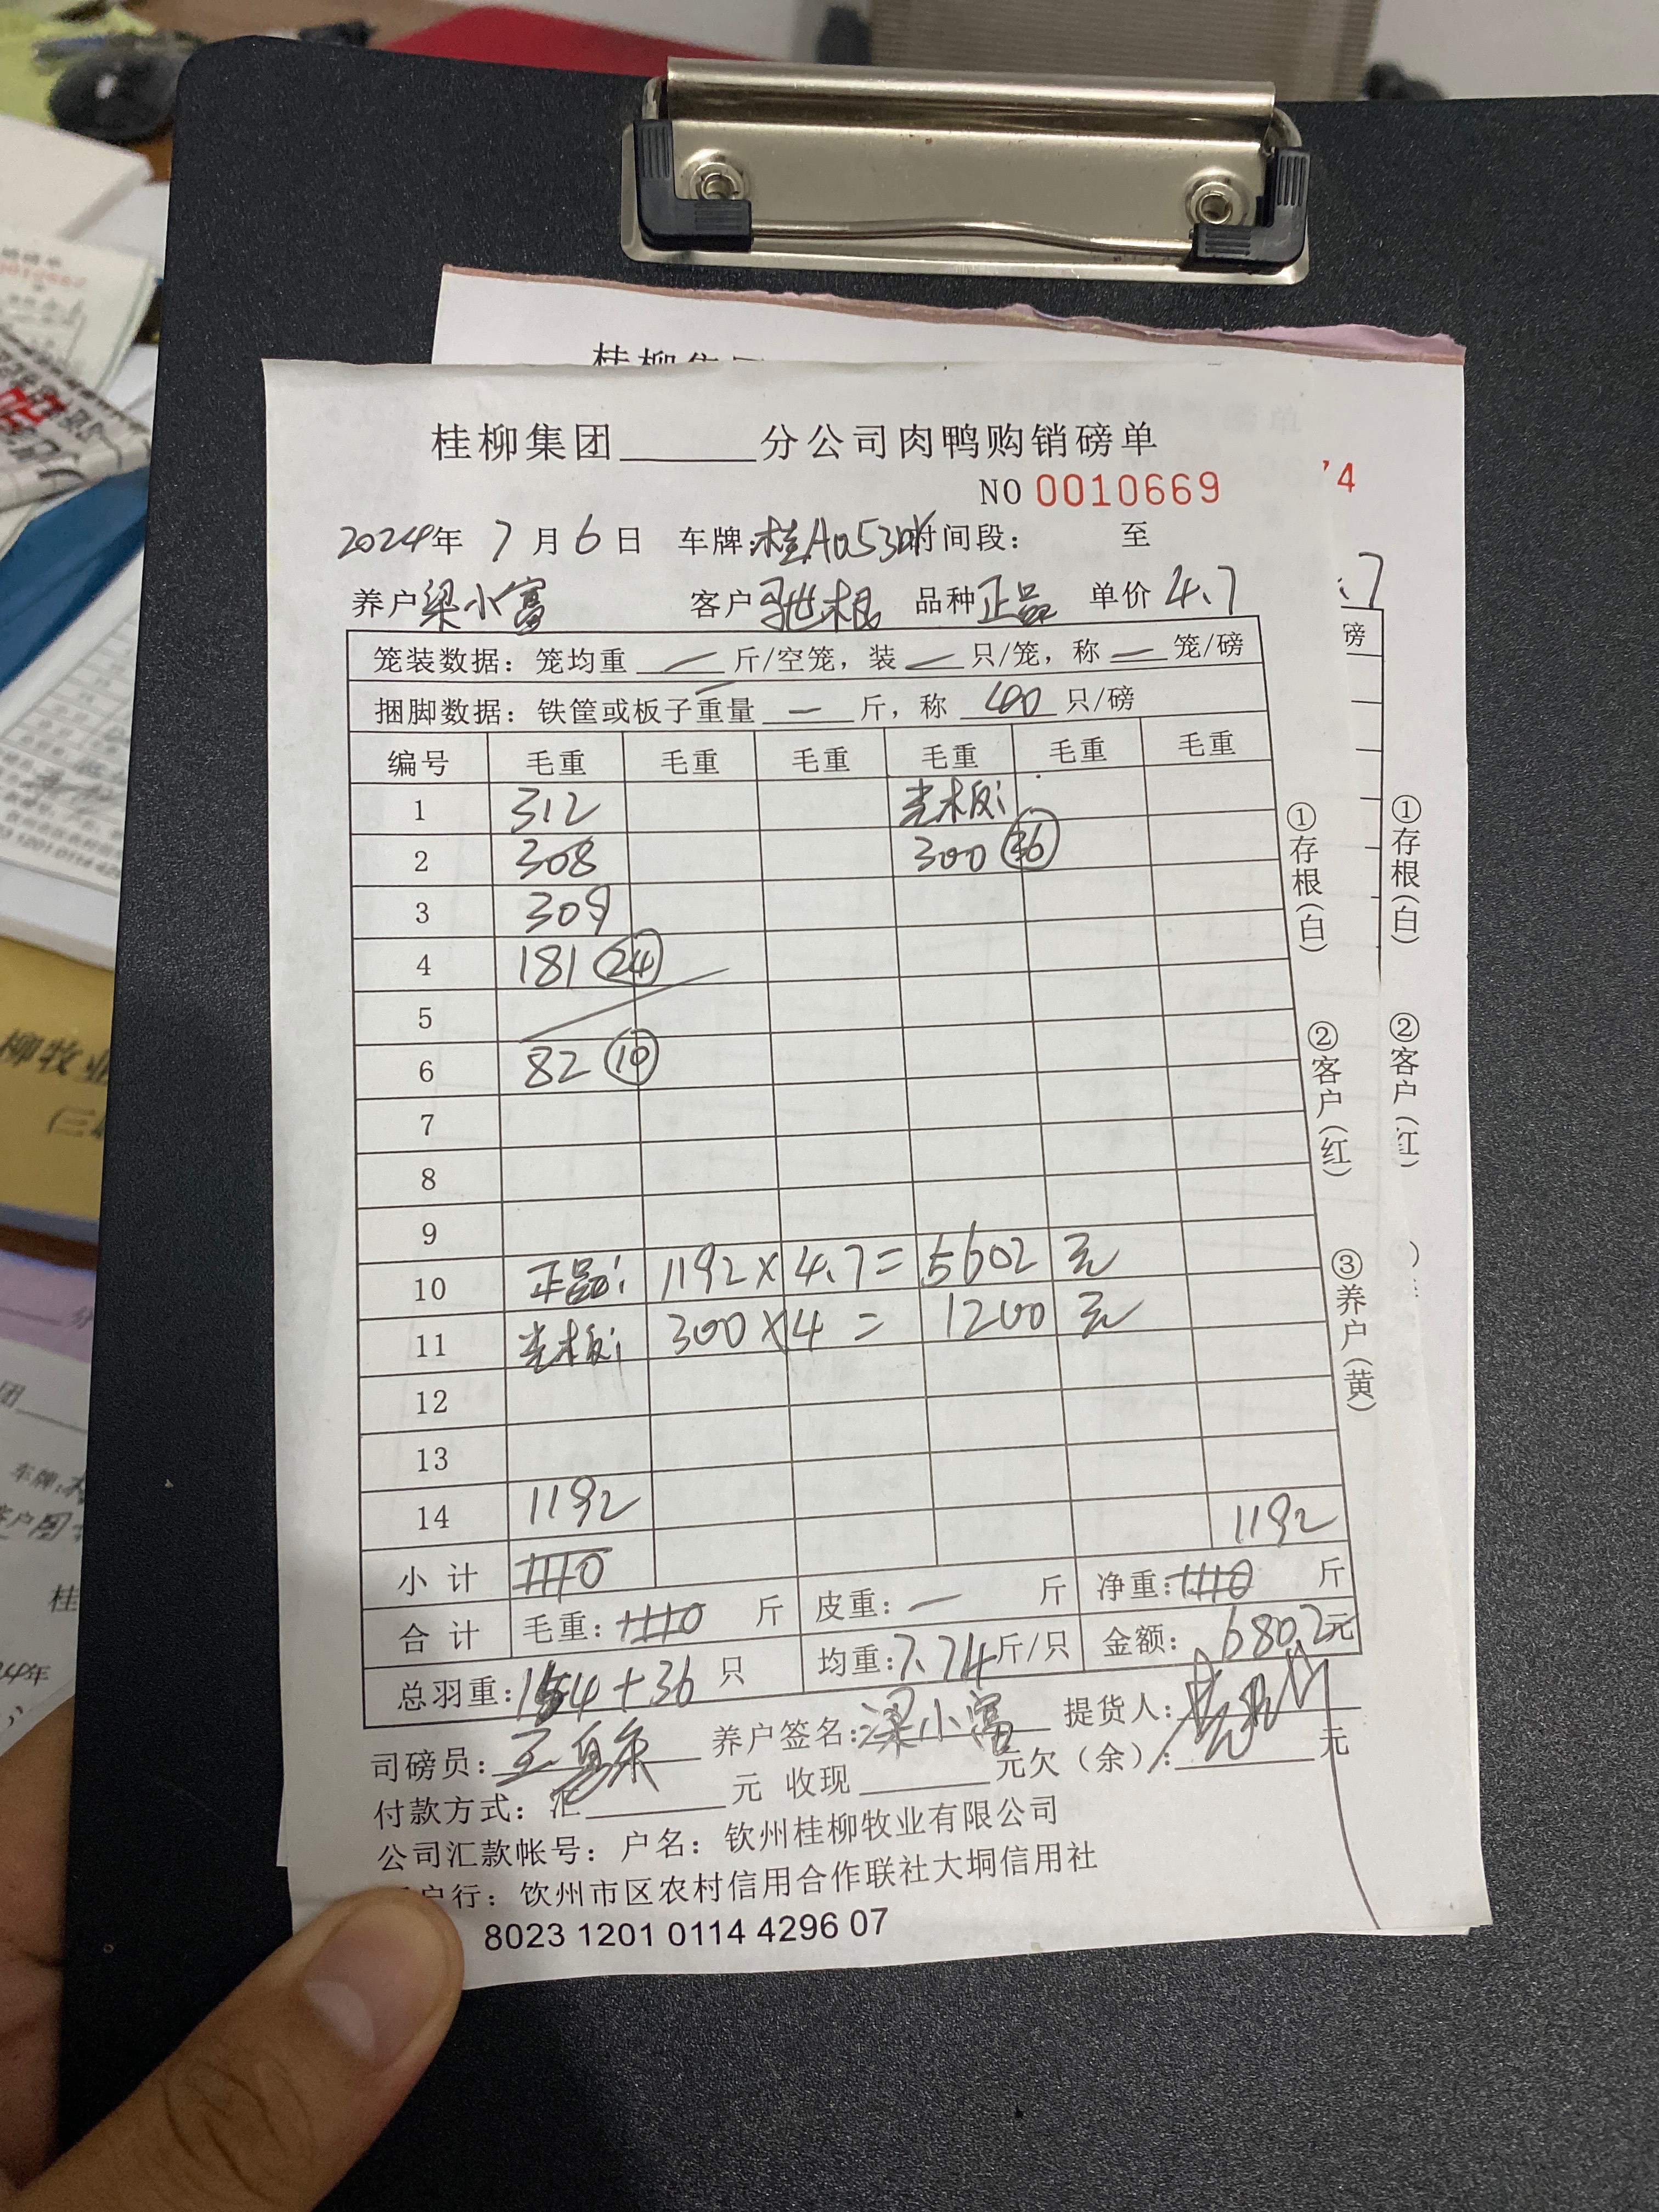 桂柳集团______分公司肉鸭购销磅单
NO 0010669
2024年 7月6日 车牌: 时间段: 至
养户 梁小富 客户 品种 正品 单价 4.7
笼装数据: 笼均重 — 斤/空笼, 装 — 只/笼, 称 — 笼/磅
捆脚数据: 铁筐或板子重量 — 斤, 称 40 只/磅
编号 毛重 毛重 毛重 毛重 毛重 毛重
1 312 光板:
2 308 300 36
3 309
4 181 24
5
6 82 10
7
8
9
10 正品: 1192×4.7=5602元
11 光板: 300×4=1200元
12
13
14 1192 1192
小计 1110
合计 毛重: 1110 斤 皮重: — 斤 净重: 1110 斤
总羽重: 154+36 只 均重: 7.74 斤/只 金额: 6802元
司磅员: 养户签名: 梁小富 提货人:
付款方式: 汇______元 收现______元欠(余):______元
公司汇款帐号: 户名: 钦州桂柳牧业有限公司
户行: 钦州市区农村信用合作联社大垌信用社
8023 1201 0114 4296 07
①存根(白) ②客户(红) ③养户(黄)
桂柳集团
4
磅
①存根(白) ②客户(红)
柳牧业